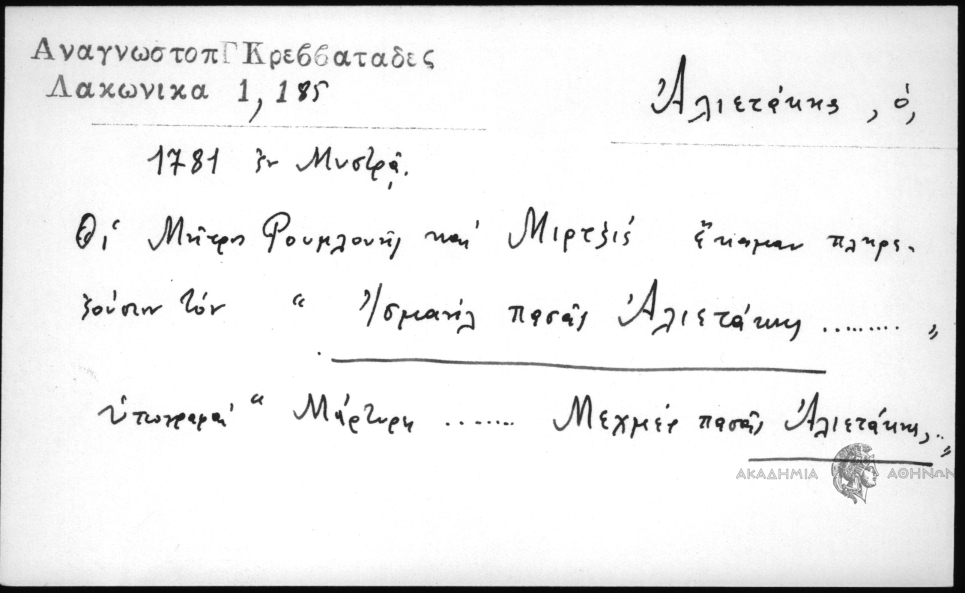 ΑναγνωστοπΓΚρεββαταδες
Λακωνικα 1, 185
Ἀλιετάκης, ὁ,
1781 ἐν Μυστρᾷ.
Οἱ Μῆτρος καὶ Μιρτζις ἔκαμαν πληρε-
ξούσιον τόν " Ἰσμαήλ πασᾶς Ἀλιετάκης ......... "
ὑπογραφαί " Μάρτυρη ........ Μεχμέρ πασᾶς Ἀλιετάκης, .. "
ΑΚΑΔΗΜΙΑ ΑΘΗΝΩΝ